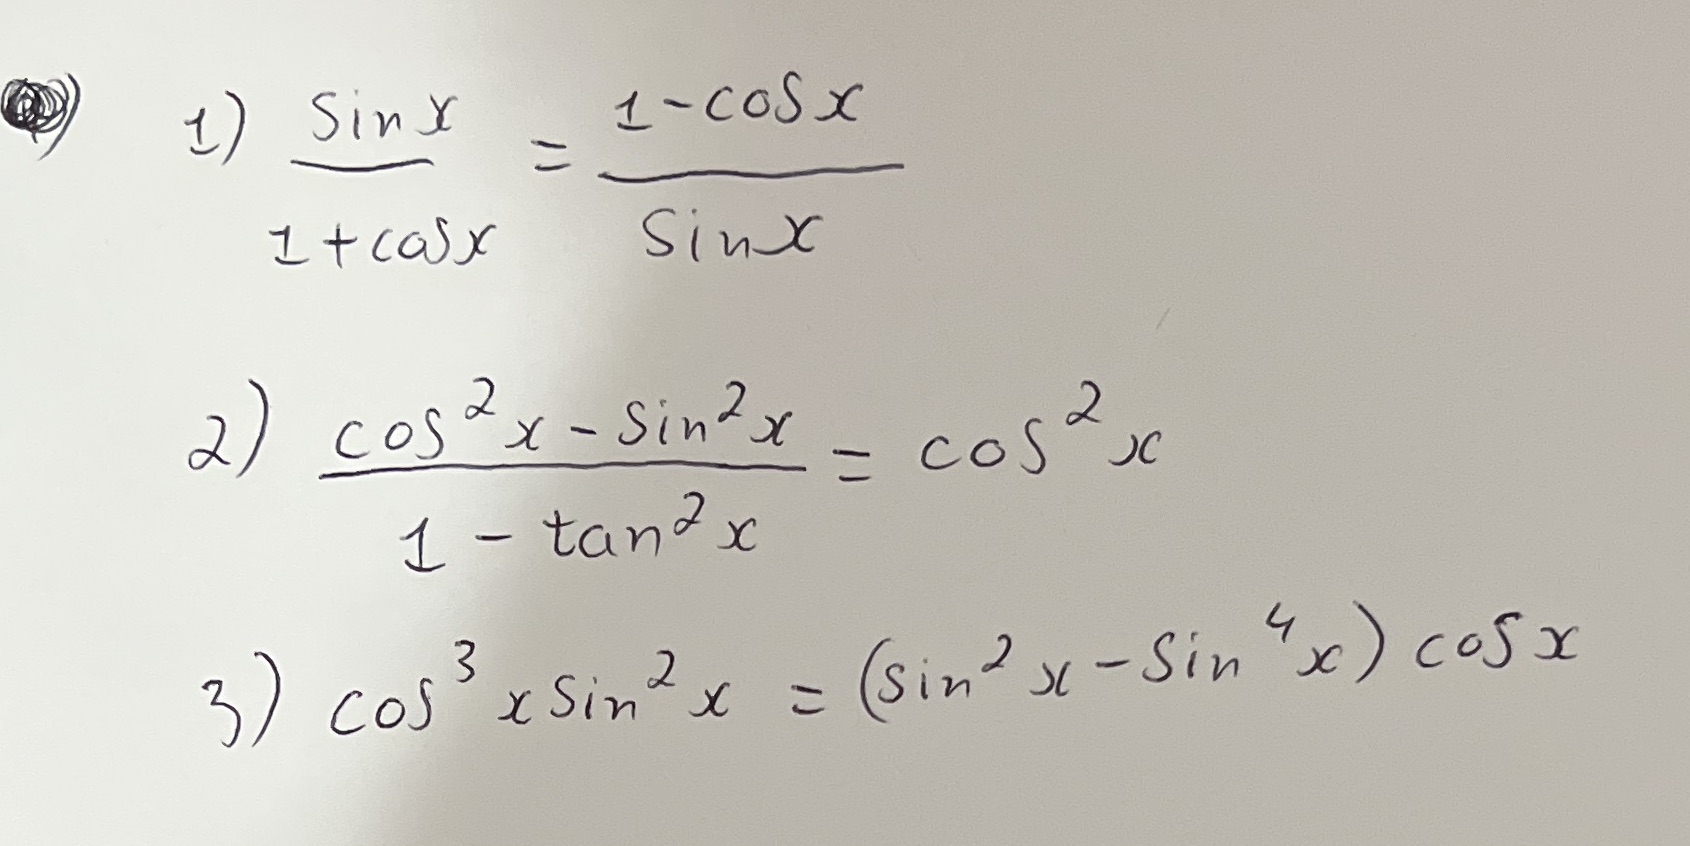 1) sin x / 1 + cos x = 1 - cos x / sin x
2) cos² x - sin² x / 1 - tan² x = cos² x
3) cos³ x sin² x = (sin² x - sin⁴ x) cos x